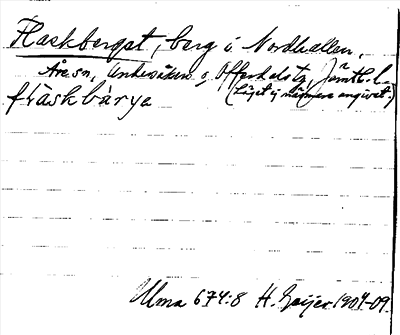 Flaskberget, berg i Nordhallen,
Åre sn, Undersåkers o. Offerdals tg, Jämtl. l.
(Läget ej närmare angivet)
flàskbàrye
Ulma 674:8 H. Geijer 1904-09.